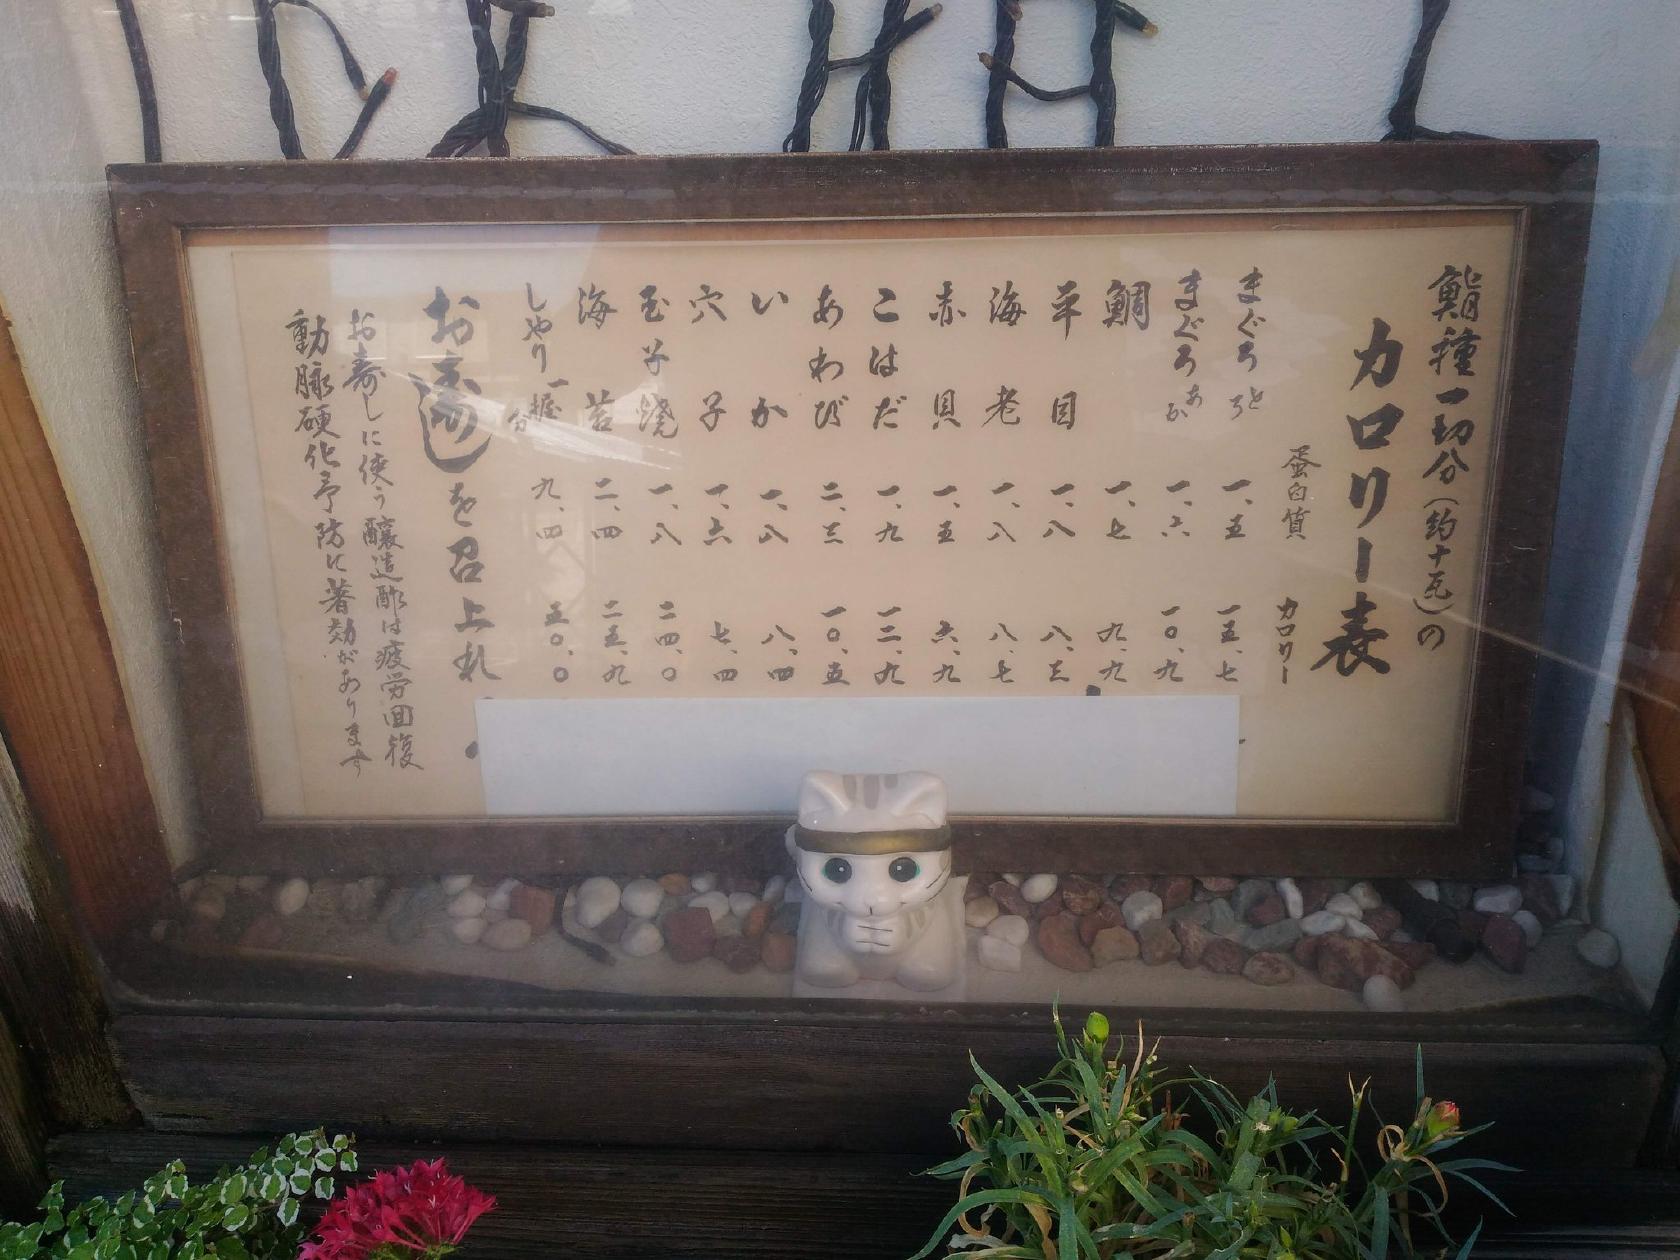 鮨種一切分（約十瓦）の
カロリー表
蛋白質 カロリー
まぐろ とろ 一、五 一五、七
まぐろ あか 一、六 一〇、九
鯛 一、七 九、九
平目 一、八 八、三
海老 一、八 八、七
赤貝 一、五 六、九
こはだ 一、九 一三、九
あわび 二、三 一〇、五
いか 一、八 八、四
穴子 一、六 七、四
玉子焼 一、八 二四、〇
海苔 二、四 二五、九
しやり 一握分 九、四 五〇、〇
お壽しを召上れ
お壽しに使う醸造酢は疲労回復
動脉硬化予防に著効があります